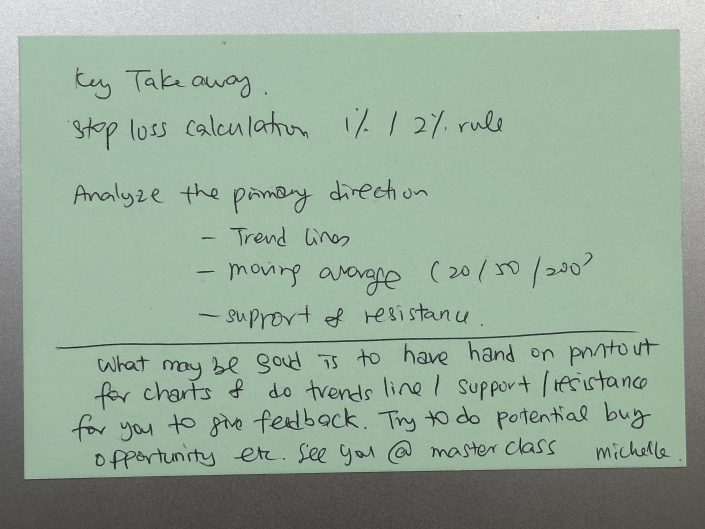 Key Take away.
Stop loss calculation 1% / 2% rule
Analyze the primary direction
- Trend lines
- moving average (20/50/200)
- support & resistance.
What may be good is to have hand on printout
for charts & do trends line / support / resistance
for you to give feedback. Try to do potential buy
opportunity etc. See you @ master class michelle.